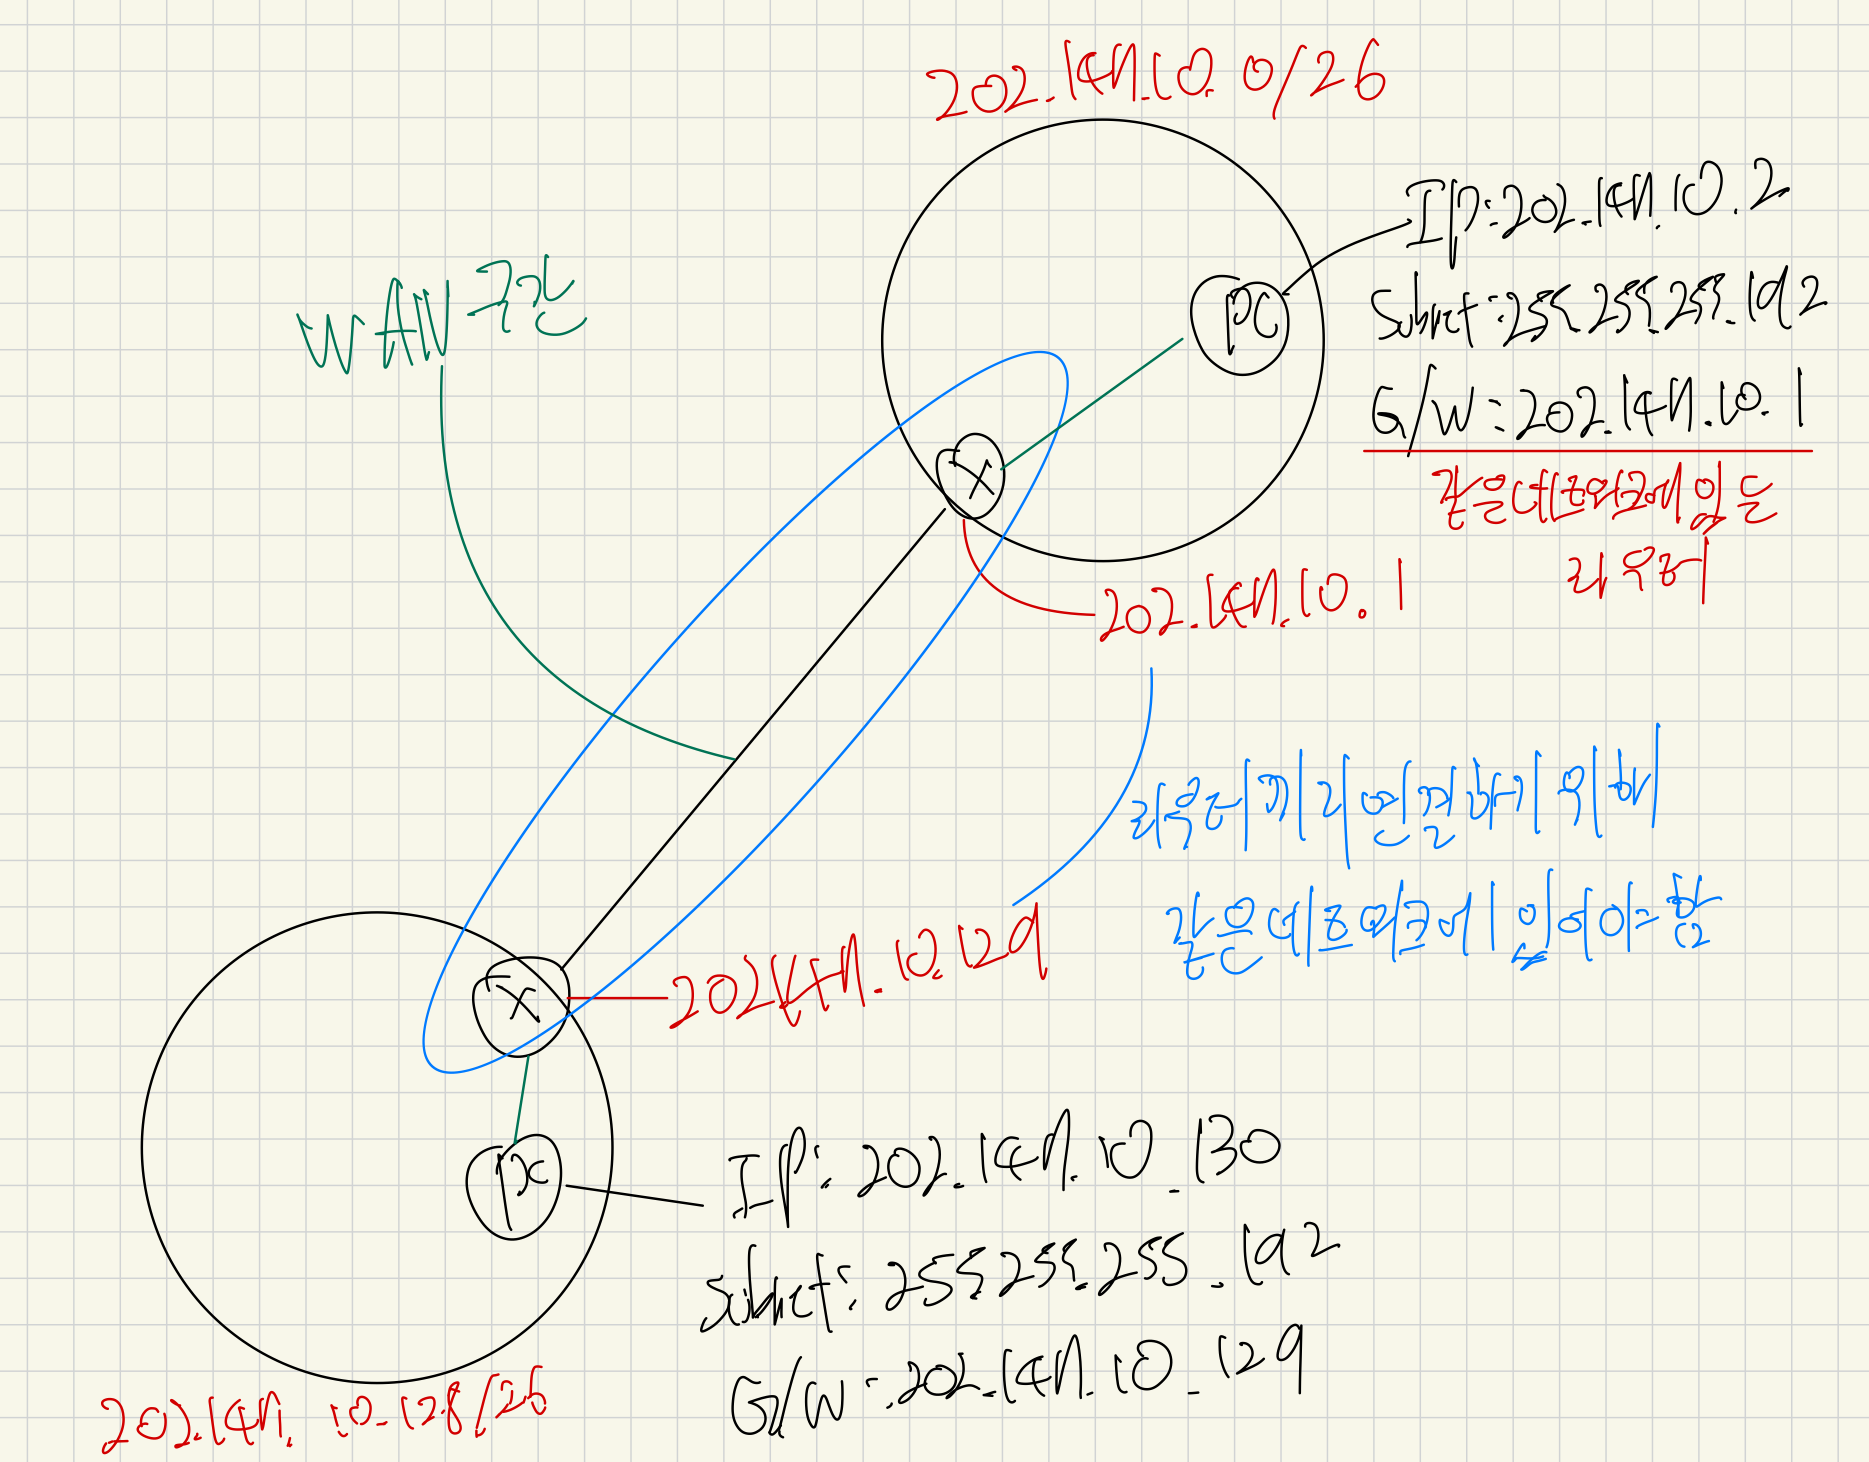 202.147.10.0/26
IP:202.147.10.2
Subnet:255.255.255.192
G/W:202.147.10.1
같은네트워크에 있는
라우터
WAN구간
PC
X
202.147.10.1
라우터끼리 연결하기 위해
같은네트워크에 있어야 함
202.147.10.129
X
PC
IP: 202.147.10.130
Subnet: 255.255.255.192
G/W: 202.147.10.129
202.147.10.128/26